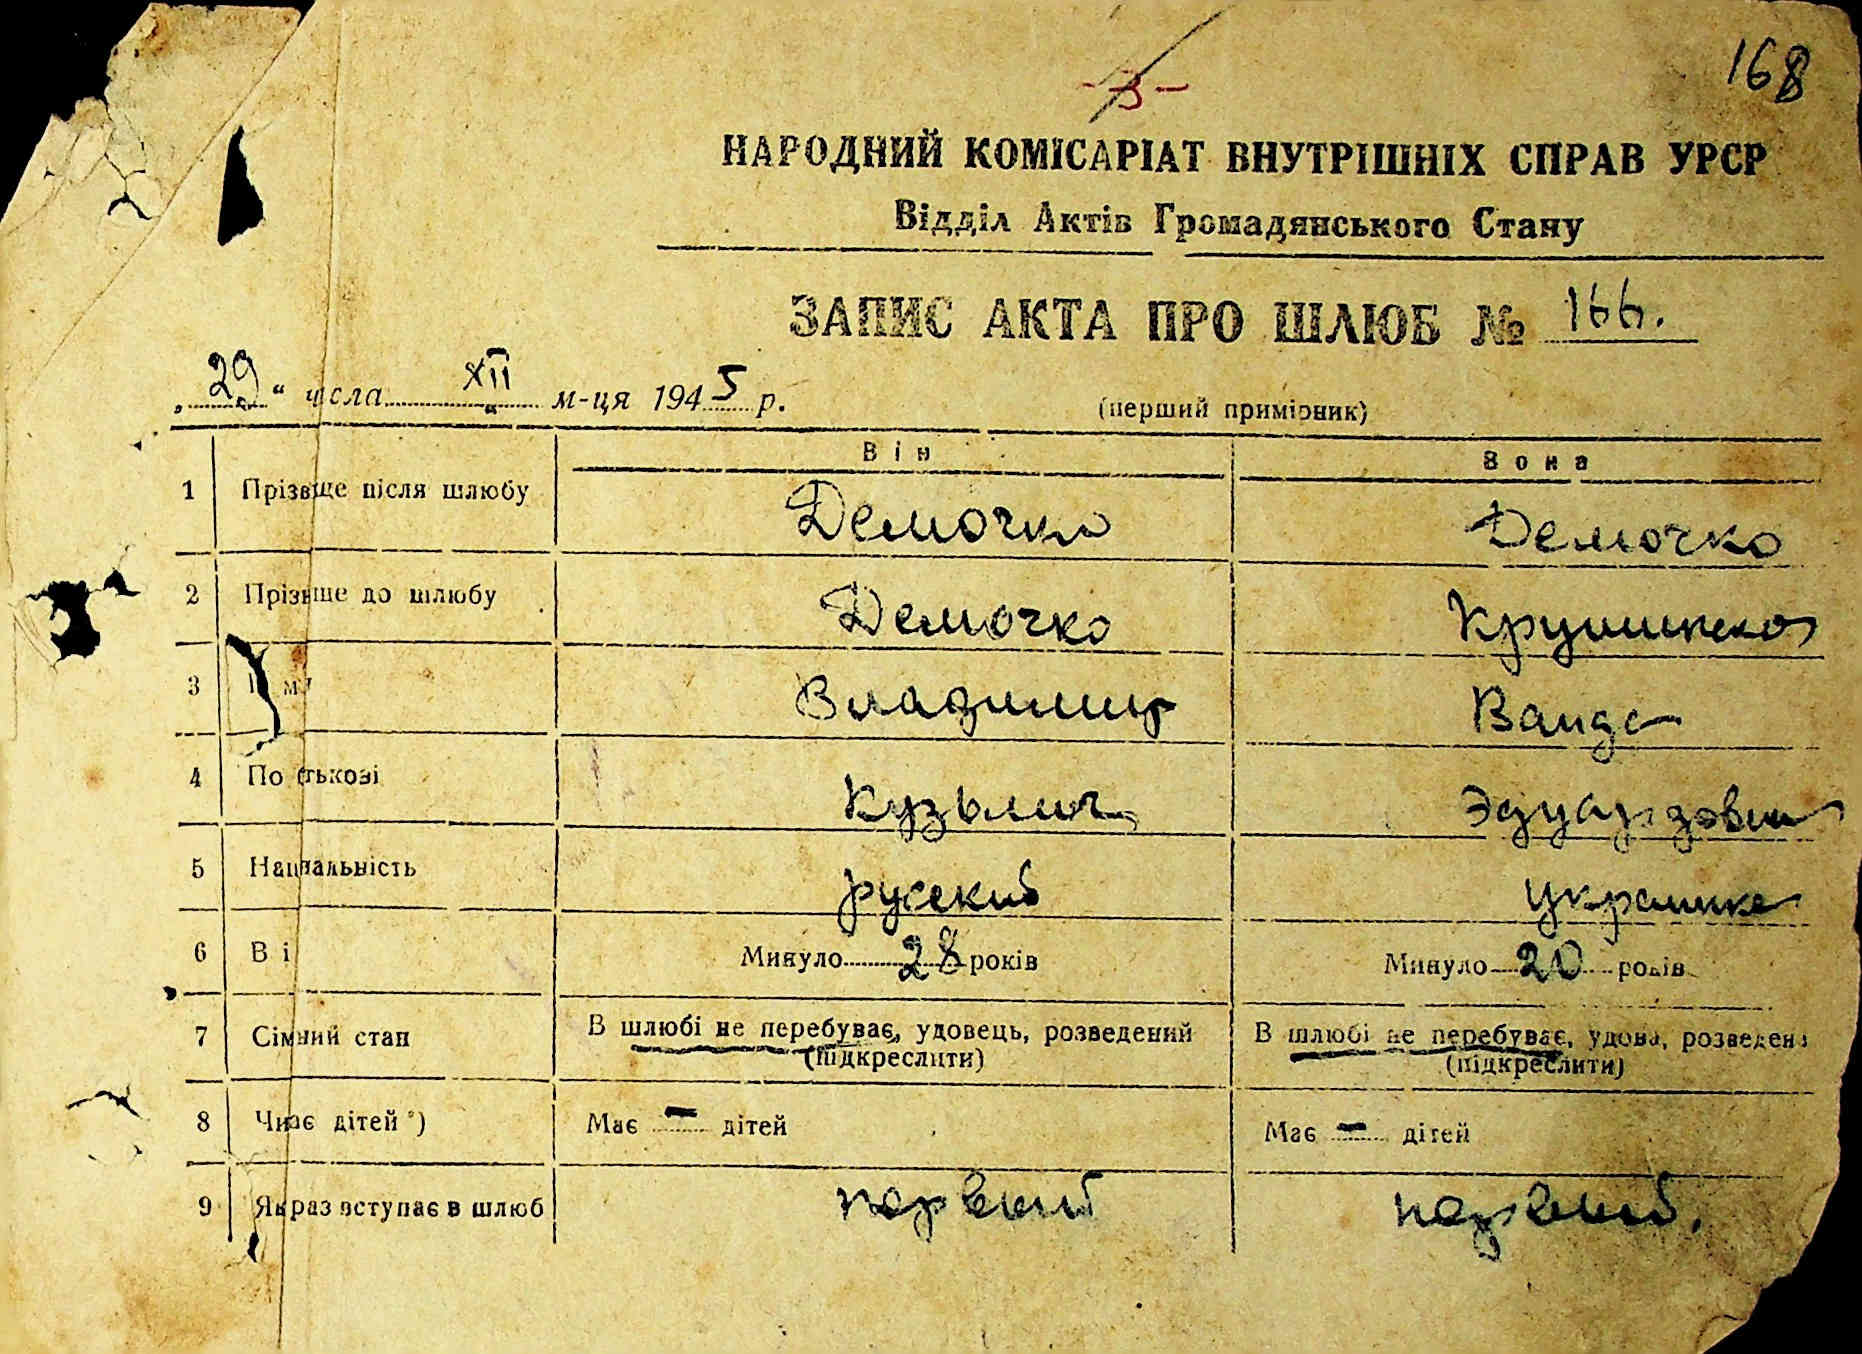 168
-3-
НАРОДНИЙ КОМІСАРІАТ ВНУТРІШНІХ СПРАВ УРСР
Відділ Актів Громадянського Стану
ЗАПИС АКТА ПРО ШЛЮБ № 166.
„29“ числа XII м-ця 1945 р.
(перший примірник)
Він Вона
1 Прізвище після шлюбу Демочко Демочко
2 Прізвище до шлюбу Демочко
3 Владимир Ванда
4 По батькові Кузьмич Эдуардовна
5 Національність русский украинка
6 Ві Минуло 28 років Минуло 20 років
7 Сімейний стан В шлюбі не перебуває, удовець, розведений В шлюбі не перебуває, удова, розведена
(підкреслити) (підкреслити)
8 Чи має дітей *) Має — дітей Має — дітей
9 Який раз вступає в шлюб первый первый.